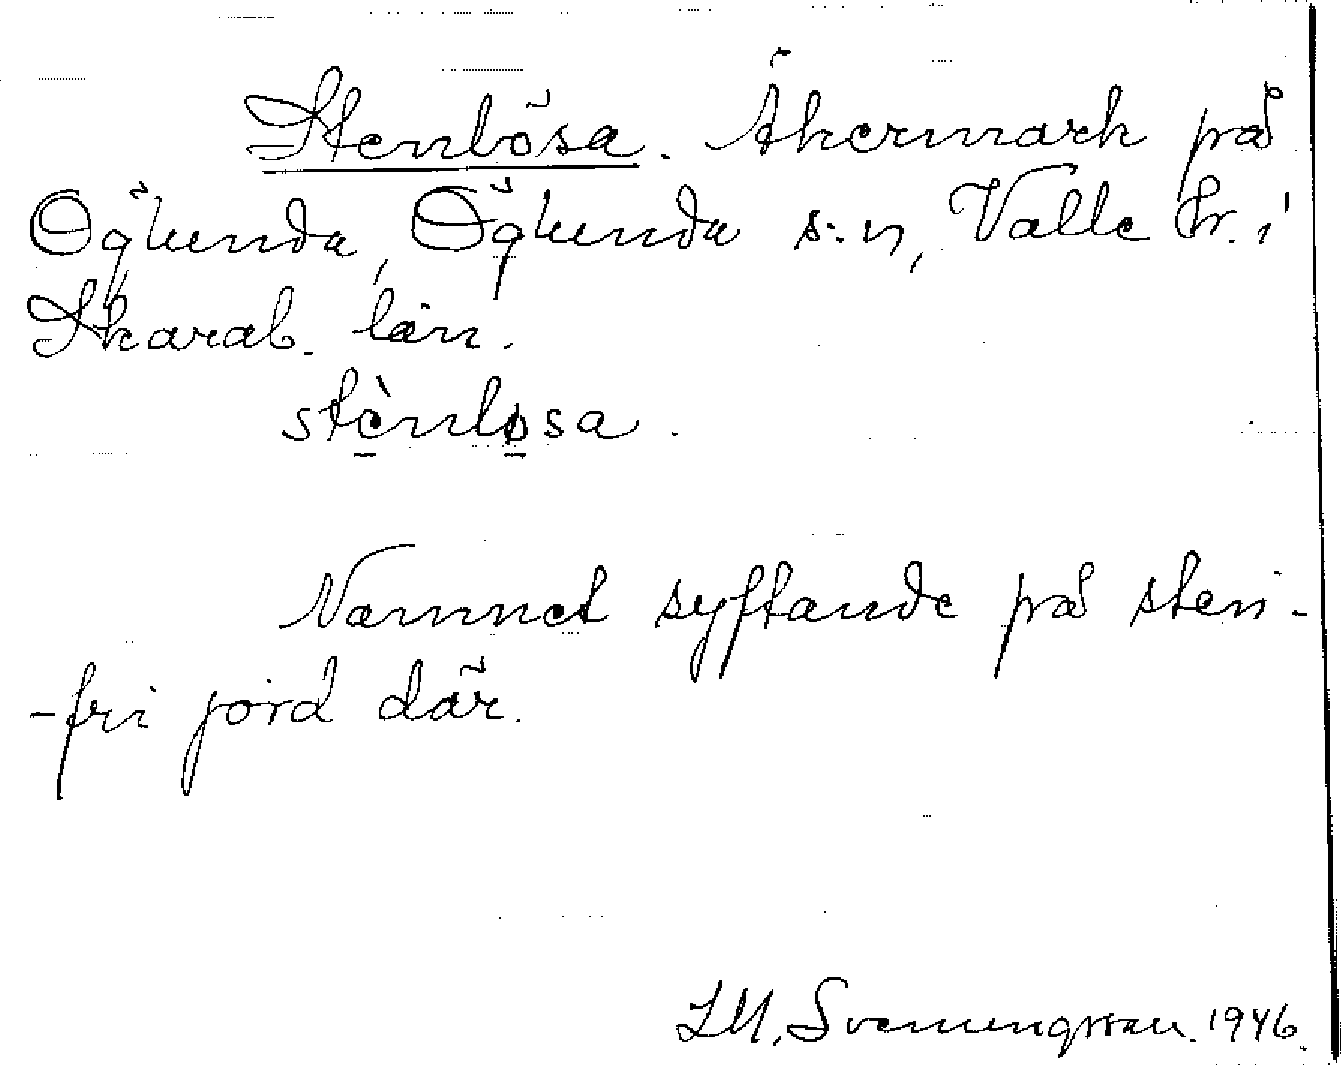 Stenlösa. Åkermark på
Öglunda, Öglunda s:n, Valle hr. i
Skarab. län.
stènløsa.
Namnet syftande på sten-
-fri jord där.
LM, Svenungsson. 1946.